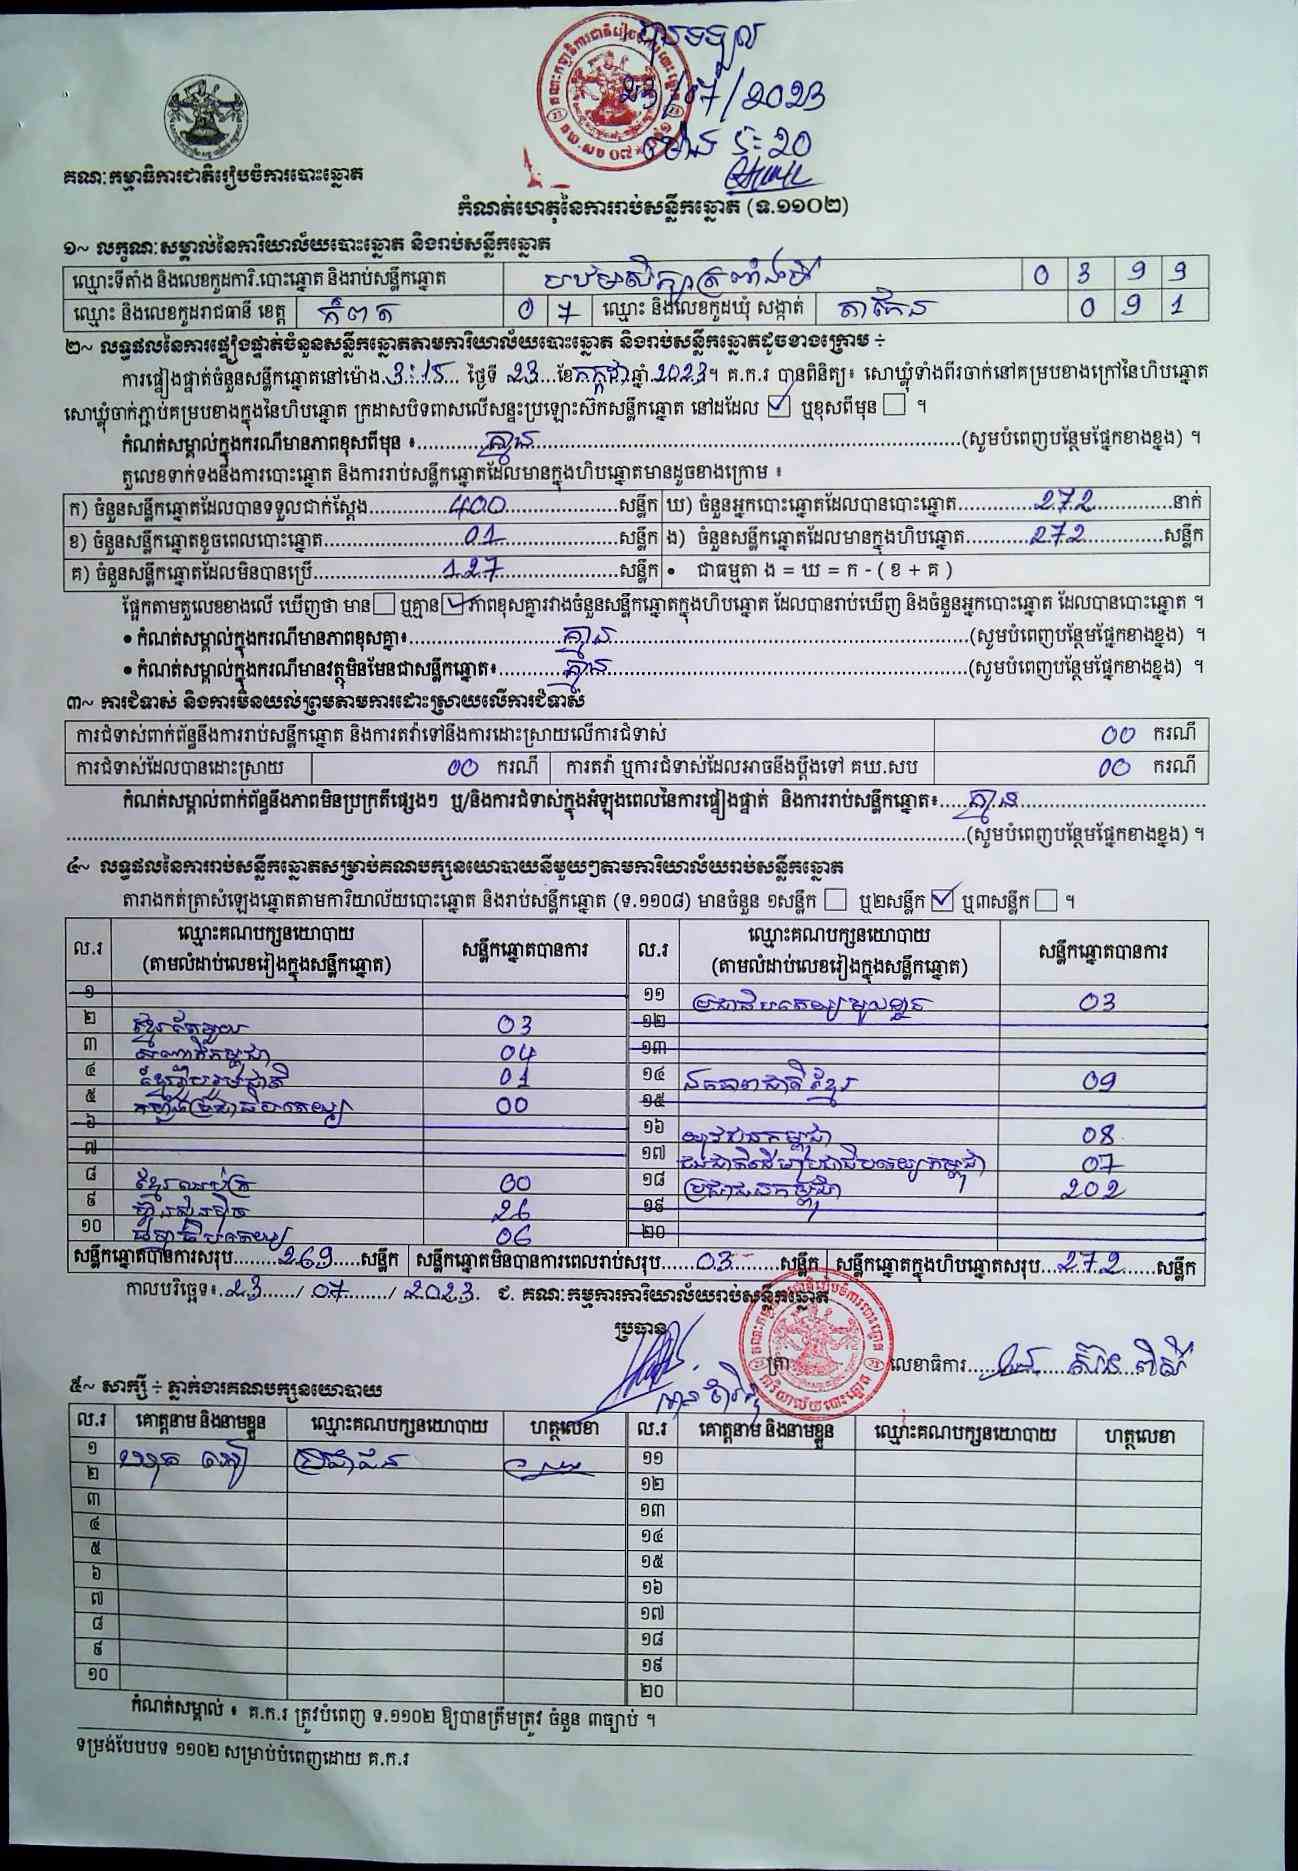 បានទទួល
23/07/2023
ម៉ោង ៤:20
គណៈកម្មាធិការជាតិរៀបចំការបោះឆ្នោត
កំណត់ហេតុនៃការរាប់សន្លឹកឆ្នោត (ទ.១១០២)
១~ លក្ខណៈសម្គាល់នៃការិយាល័យបោះឆ្នោត និងរាប់សន្លឹកឆ្នោត
ឈ្មោះទីតាំង និងលេខកូដការិ.បោះឆ្នោត និងរាប់សន្លឹកឆ្នោត បឋមសិក្សាត្រពាំងថ្មី 0 3 9 9
ឈ្មោះ និងលេខកូដរាជធានី ខេត្ត កំពត 0 7 ឈ្មោះ និងលេខកូដឃុំ សង្កាត់ តាកែន 0 9 1
២~ លទ្ធផលនៃការផ្ទៀងផ្ទាត់ចំនួនសន្លឹកឆ្នោតតាមការិយាល័យបោះឆ្នោត និងរាប់សន្លឹកឆ្នោតដូចខាងក្រោម ÷
ការផ្ទៀងផ្ទាត់ចំនួនសន្លឹកឆ្នោតនៅម៉ោង.3:15... ថ្ងៃទី 23...ខែកក្កដាឆ្នាំ.2023។ គ.ក.រ បានពិនិត្យ៖ សោឃ្លុំទាំងពីរចាក់នៅគម្របខាងក្រៅនៃហិបឆ្នោត
សោឃ្លុំចាក់ភ្ជាប់គម្របខាងក្នុងនៃហិបឆ្នោត ក្រដាសបិទពាសលើសន្ទះប្រឡោះស៊កសន្លឹកឆ្នោត នៅដដែល ☑ ឬខុសពីមុន ☐ ។
កំណត់សម្គាល់ក្នុងករណីមានភាពខុសពីមុន ៖..........គ្មាន..........(សូមបំពេញបន្ថែមផ្នែកខាងខ្នង) ។
តួលេខទាក់ទងនឹងការបោះឆ្នោត និងការរាប់សន្លឹកឆ្នោតដែលមានក្នុងហិបឆ្នោតមានដូចខាងក្រោម ៖
ក) ចំនួនសន្លឹកឆ្នោតដែលបានទទួលជាក់ស្តែង..........400..........សន្លឹក ឃ) ចំនួនអ្នកបោះឆ្នោតដែលបានបោះឆ្នោត..........272..........នាក់
ខ) ចំនួនសន្លឹកឆ្នោតខូចពេលបោះឆ្នោត..........01..........សន្លឹក ង) ចំនួនសន្លឹកឆ្នោតដែលមានក្នុងហិបឆ្នោត..........272..........សន្លឹក
គ) ចំនួនសន្លឹកឆ្នោតដែលមិនបានប្រើ..........127..........សន្លឹក • ជាធម្មតា ង = ឃ = ក - ( ខ + គ )
ផ្អែកតាមតួលេខខាងលើ ឃើញថា មាន ☐ ឬគ្មាន ☑ ភាពខុសគ្នារវាងចំនួនសន្លឹកឆ្នោតក្នុងហិបឆ្នោត ដែលបានរាប់ឃើញ និងចំនួនអ្នកបោះឆ្នោត ដែលបានបោះឆ្នោត ។
• កំណត់សម្គាល់ក្នុងករណីមានភាពខុសគ្នា៖..........គ្មាន..........(សូមបំពេញបន្ថែមផ្នែកខាងខ្នង) ។
• កំណត់សម្គាល់ក្នុងករណីមានវត្ថុមិនមែនជាសន្លឹកឆ្នោត៖..........គ្មាន..........(សូមបំពេញបន្ថែមផ្នែកខាងខ្នង) ។
៣~ ការជំទាស់ និងការមិនយល់ព្រមតាមការដោះស្រាយលើការជំទាស់
ការជំទាស់ពាក់ព័ន្ធនឹងការរាប់សន្លឹកឆ្នោត និងការតវ៉ាទៅនឹងការដោះស្រាយលើការជំទាស់ 00 ករណី
ការជំទាស់ដែលបានដោះស្រាយ 00 ករណី ការតវ៉ា ឬការជំទាស់ដែលអាចនឹងប្តឹងទៅ គឃ.សប 00 ករណី
កំណត់សម្គាល់ពាក់ព័ន្ធនឹងភាពមិនប្រក្រតីផ្សេងៗ ឬ/និងការជំទាស់ក្នុងអំឡុងពេលនៃការផ្ទៀងផ្ទាត់ និងការរាប់សន្លឹកឆ្នោត៖.....គ្មាន..........
..........(សូមបំពេញបន្ថែមផ្នែកខាងខ្នង) ។
៤~ លទ្ធផលនៃការរាប់សន្លឹកឆ្នោតសម្រាប់គណបក្សនយោបាយនីមួយៗតាមការិយាល័យរាប់សន្លឹកឆ្នោត
តារាងកត់ត្រាសំឡេងឆ្នោតតាមការិយាល័យបោះឆ្នោត និងរាប់សន្លឹកឆ្នោត (ទ.១១០៨) មានចំនួន ១សន្លឹក ☐ ឬ២សន្លឹក ☑ ឬ៣សន្លឹក ☐ ។
ល.រ ឈ្មោះគណបក្សនយោបាយ (តាមលំដាប់លេខរៀងក្នុងសន្លឹកឆ្នោត) សន្លឹកឆ្នោតបានការ ល.រ ឈ្មោះគណបក្សនយោបាយ (តាមលំដាប់លេខរៀងក្នុងសន្លឹកឆ្នោត) សន្លឹកឆ្នោតបានការ
១ ១១ ប្រជាធិបតេយ្យមូលដ្ឋាន 03
២ ខ្មែរតែមួយ 03 ១២
៣ សំណាតិកម្ពុជា 04 ១៣
៤ ខ្មែររួបរួមជាតិ 01 ១៤ ឯកភាពជាតិខ្មែរ 09
៥ កម្លាំងប្រជាធិបតេយ្យ 00 ១៥
៦ ១៦ យុវជនកម្ពុជា 08
៧ ១៧ ជនជាតិដើមប្រជាធិបតេយ្យកម្ពុជា 07
៨ ខ្មែរឈប់ក្រ 00 ១៨ ប្រជាជនកម្ពុជា 202
៩ ហ្វ៊ុនស៊ិនប៉ិច 26 ១៩
១០ ធម្មាធិបតេយ្យ 06 ២០
សន្លឹកឆ្នោតបានការសរុប........269.....សន្លឹក សន្លឹកឆ្នោតមិនបានការពេលរាប់សរុប......03........សន្លឹក សន្លឹកឆ្នោតក្នុងហិបឆ្នោតសរុប...272......សន្លឹក
កាលបរិច្ឆេទ៖.23....../ 07......../ 2023. ជ. គណៈកម្មការការិយាល័យរាប់សន្លឹកឆ្នោត
ប្រធាន
ត្រា លេខាធិការ
៥~ សាក្សី ÷ ភ្នាក់ងារគណបក្សនយោបាយ
ល.រ គោត្តនាម និងនាមខ្លួន ឈ្មោះគណបក្សនយោបាយ ហត្ថលេខា ល.រ គោត្តនាម និងនាមខ្លួន ឈ្មោះគណបក្សនយោបាយ ហត្ថលេខា
១ ប្រជាជន ១១
២ ១២
៣ ១៣
៤ ១៤
៥ ១៥
៦ ១៦
៧ ១៧
៨ ១៨
៩ ១៩
១០ ២០
កំណត់សម្គាល់ ៖ គ.ក.រ ត្រូវបំពេញ ទ.១១០២ ឱ្យបានត្រឹមត្រូវ ចំនួន ៣ច្បាប់ ។
ទម្រង់បែបបទ ១១០២ សម្រាប់បំពេញដោយ គ.ក.រ